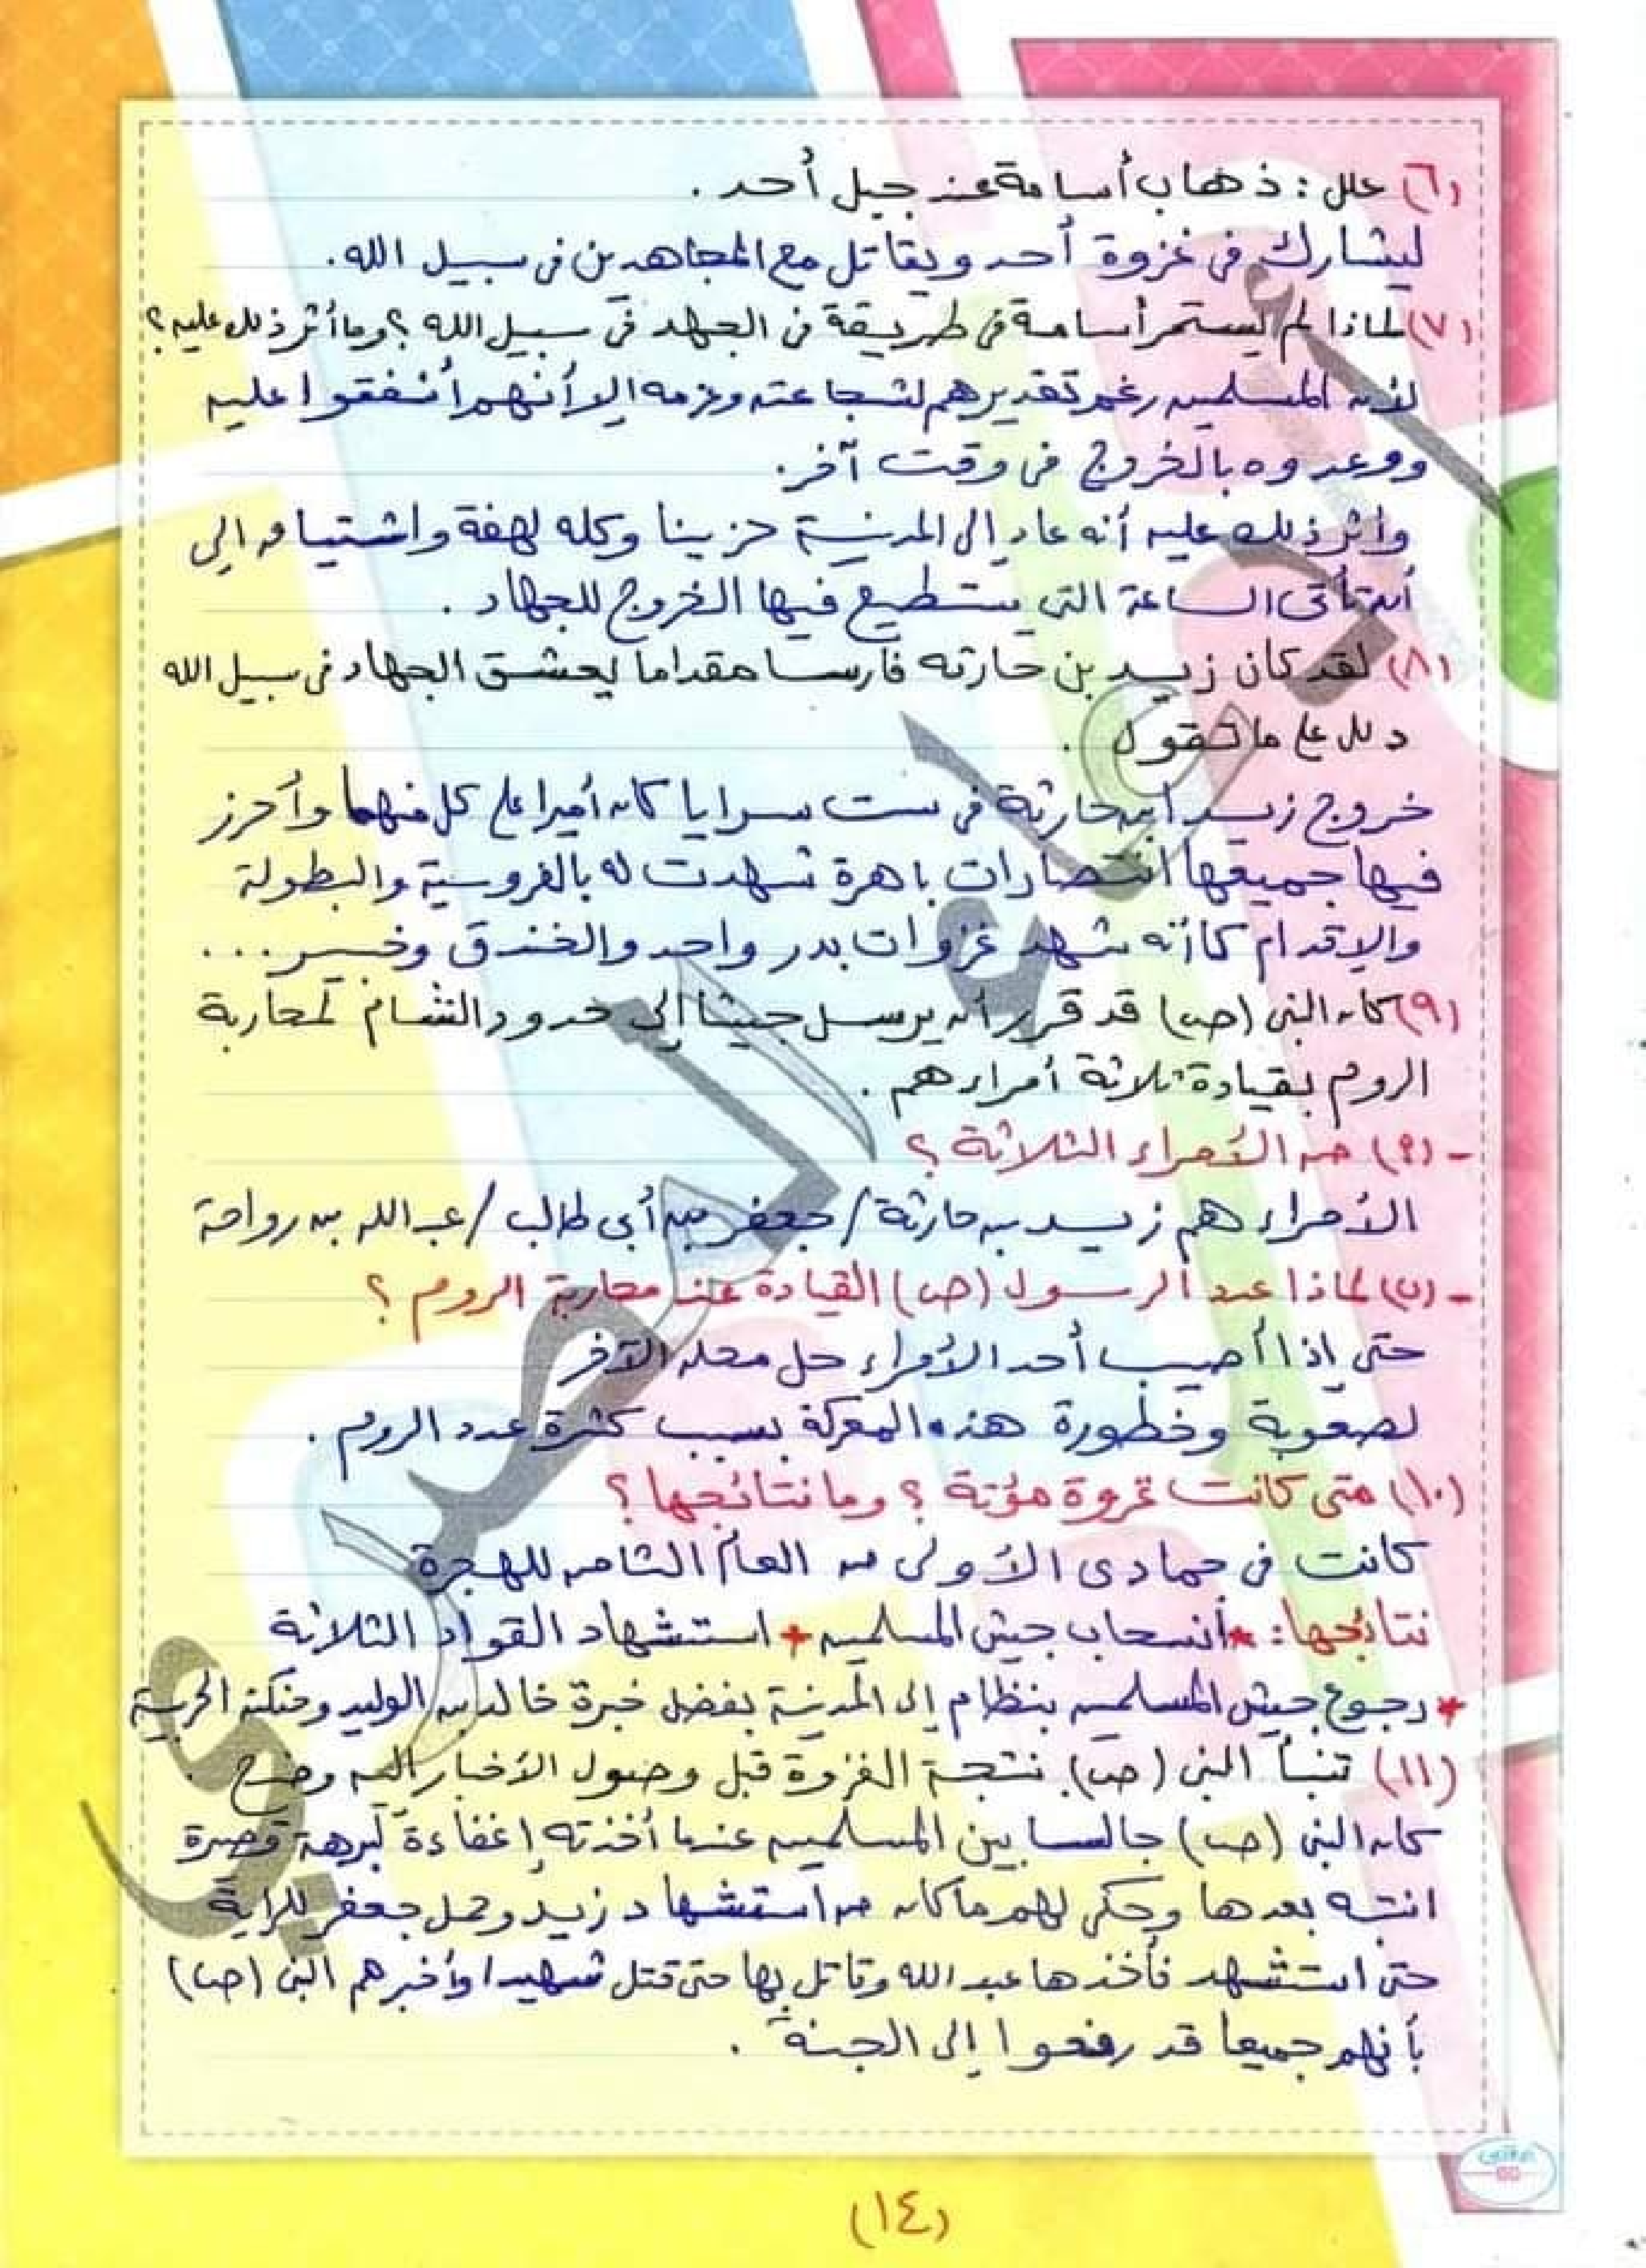 (٦) علل : ذهاب أسامة عند جبل أحد .
ليشارك فى غزوة أحد ويقاتل مع المجاهدين فى سبيل الله .
(٧) لماذا لم يستمر أسامة فى طريقة فى الجهد فى سبيل الله ؟ وما أثر ذلك عليه ؟
لأن المسلمين رغم تقديرهم لشجاعته وعزمه إلا أنهم أشفقوا عليه
ووعدوه بالخروج فى وقت آخر .
وأثر ذلك عليه أنه عاد إلى المدينة حزينا وكله لهفة واشتياق إلى
أن تأتى الساعة التى يستطيع فيها الخروج للجهاد .
(٨) لقد كان زيد بن حارثه فارسا مقداما يعشق الجهاد فى سبيل الله
دلل على ما تقول .
خروج زيد ابن حارثة فى ست سرايا كان أميرا على كل منهما وأحرز
فيها جميعها انتصارات باهرة شهدت له بالفروسية والبطولة
والإقدام كما أنه شهد غزوات بدر واحد والخندق وخيبر ...
(٩) كان النبى (ص) قد قرر أن يرسل جيشا إلى حدود الشام لمحاربة
الروم بقيادة ثلاثة أمراء هم .
- (أ) من الأمراء الثلاثة ؟
الأمراء هم زيد بن حارثة / جعفر بن أبي طالب / عبدالله بن رواحة
- (ب) لماذا عدد الرسول (ص) القيادة عند محاربة الروم ؟
حتى إذا أصيب أحد الأمراء حل محله الآخر
لصعوبة وخطورة هذه المعركة بسبب كثرة عدد الروم .
(١٠) متى كانت غزوة مؤتة ؟ وما نتائجها ؟
كانت فى جمادى الأولى من العام الثامن للهجرة
نتائجها : * أنسحاب جيش المسلمين * استشهاد القواد الثلاثة
* رجوع جيش المسلمين بنظام إلى المدينة بفضل خبرة خالد بن الوليد وحنكته الحربية
(١١) تنبأ النبى (ص) بنتيجة الغزوة قبل وصول الأخبار إليه وضح .
كان النبى (ص) جالسا بين المسلمين عندما أخذته إغفاءة لبرهة قصيرة
انتبه بعدها وحكى لهم ما كان من استشهاد زيد وحمل جعفر للراية
حتى استشهد فأخذها عبد الله وقاتل بها حتى قتل شهيدا وأخبرهم النبى (ص)
بأنهم جميعا قد رفعوا إلى الجنة .
(١٤)